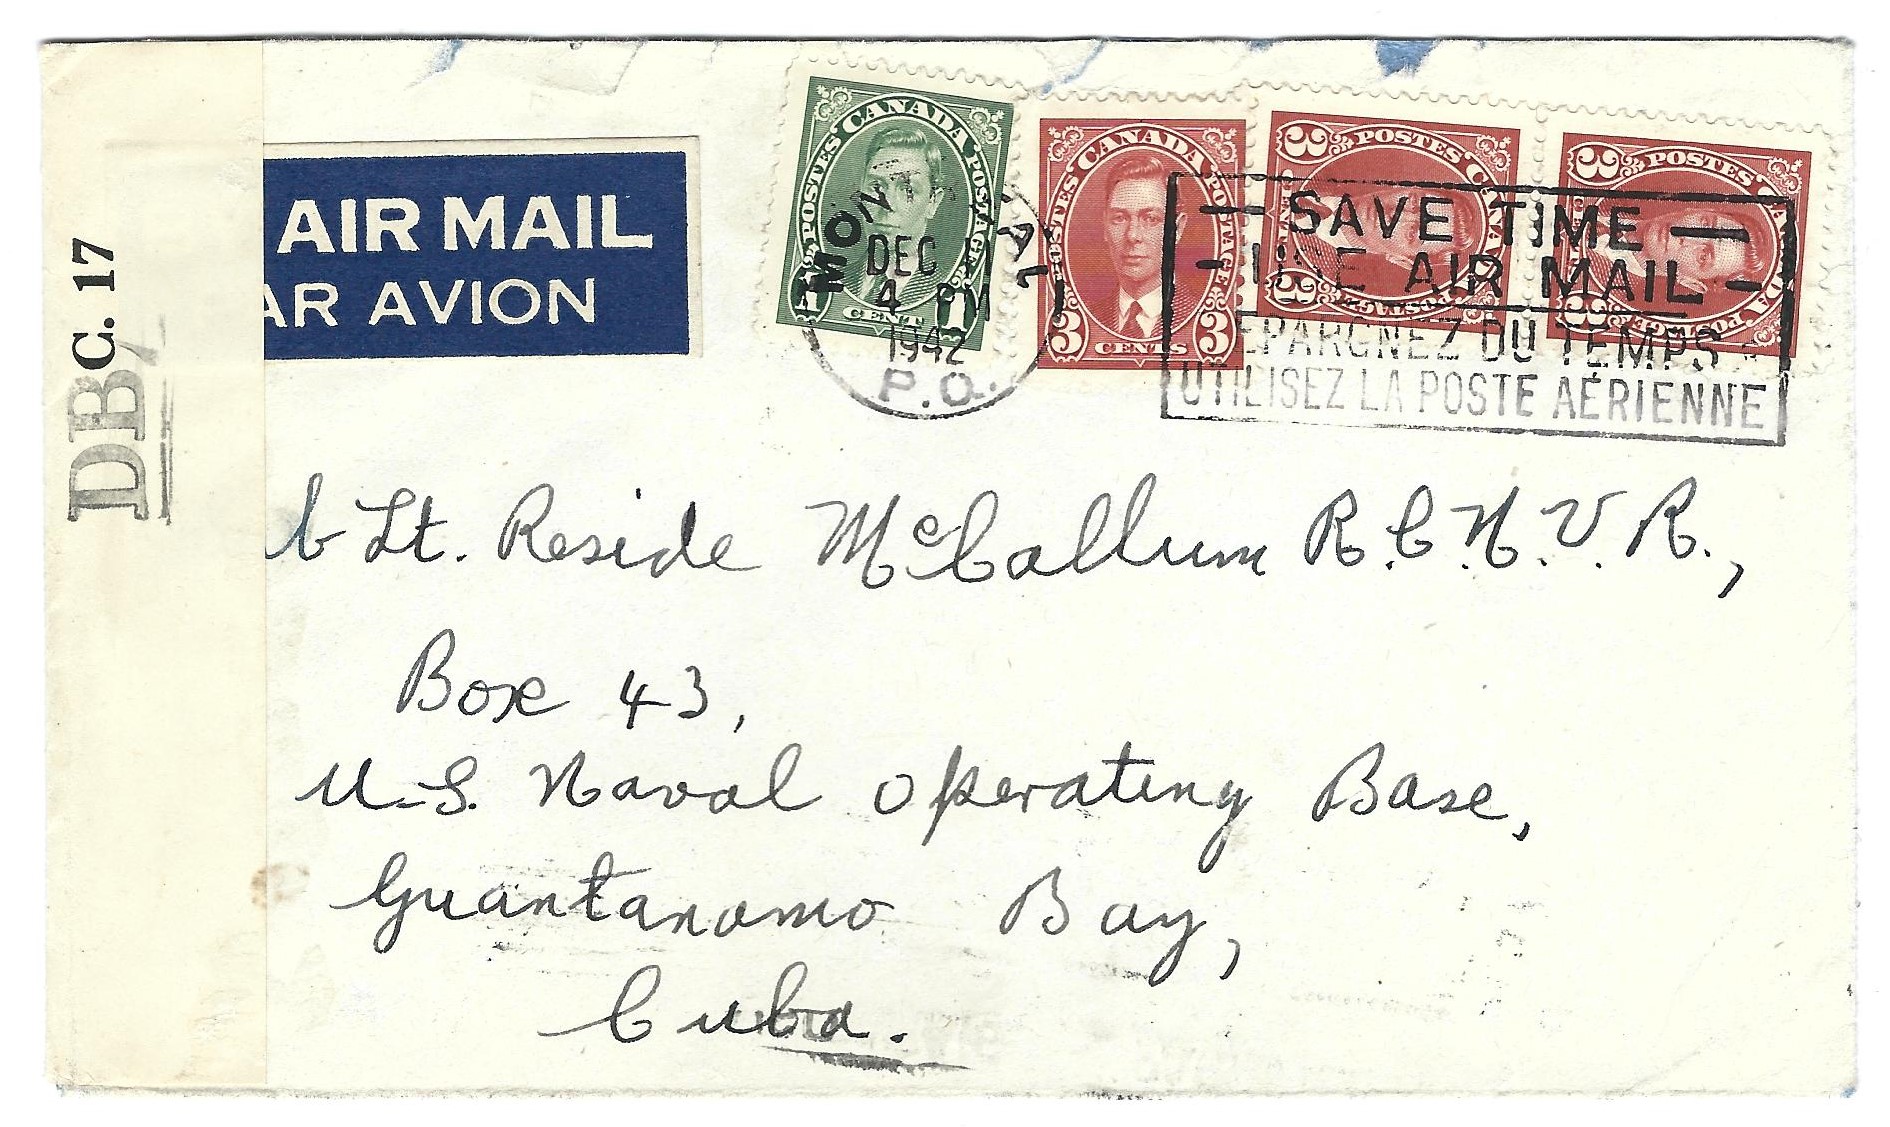 C. 17
DB/
AIR MAIL
AR AVION
CANADA
POSTES POSTAGE
1 CENT 1
CANADA
POSTES POSTAGE
3 CENTS 3
3 POSTES
CANADA
3 POSTAGE
3 POSTES
CANADA
3 POSTAGE
MONTREAL
DEC
4 PM
1942
P.O.
SAVE TIME
USE AIR MAIL
EPARGNEZ DU TEMPS
UTILISEZ LA POSTE AÉRIENNE
b Lt. Reside McCallum R.C.N.V.R.,
Box 43,
U.S. Naval Operating Base,
Guantanamo Bay,
Cuba.